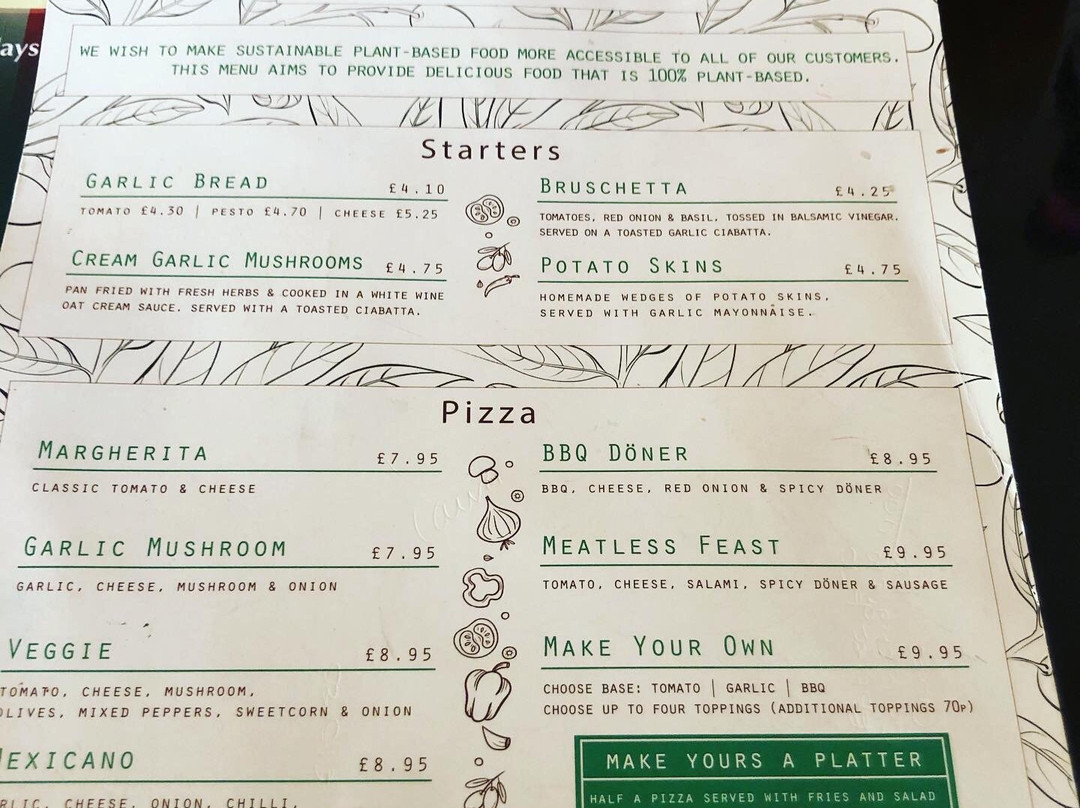 ays
WE WISH TO MAKE SUSTAINABLE PLANT-BASED FOOD MORE ACCESSIBLE TO ALL OF OUR CUSTOMERS.
THIS MENU AIMS TO PROVIDE DELICIOUS FOOD THAT IS 100% PLANT-BASED.
Starters
GARLIC BREAD £4.10
TOMATO £4.30 | PESTO £4.70 | CHEESE £5.25
CREAM GARLIC MUSHROOMS £4.75
PAN FRIED WITH FRESH HERBS & COOKED IN A WHITE WINE
OAT CREAM SAUCE. SERVED WITH A TOASTED CIABATTA.
BRUSCHETTA £4.25
TOMATOES, RED ONION & BASIL, TOSSED IN BALSAMIC VINEGAR.
SERVED ON A TOASTED GARLIC CIABATTA.
POTATO SKINS £4.75
HOMEMADE WEDGES OF POTATO SKINS,
SERVED WITH GARLIC MAYONNAISE.
Pizza
MARGHERITA £7.95
CLASSIC TOMATO & CHEESE
GARLIC MUSHROOM £7.95
GARLIC, CHEESE, MUSHROOM & ONION
VEGGIE £8.95
TOMATO, CHEESE, MUSHROOM,
OLIVES, MIXED PEPPERS, SWEETCORN & ONION
MEXICANO £8.95
RLIC, CHEESE, ONION, CHILLI,
BBQ DÖNER £8.95
BBQ, CHEESE, RED ONION & SPICY DÖNER
MEATLESS FEAST £9.95
TOMATO, CHEESE, SALAMI, SPICY DÖNER & SAUSAGE
MAKE YOUR OWN £9.95
CHOOSE BASE: TOMATO | GARLIC | BBQ
CHOOSE UP TO FOUR TOPPINGS (ADDITIONAL TOPPINGS 70P)
MAKE YOURS A PLATTER
HALF A PIZZA SERVED WITH FRIES AND SALAD